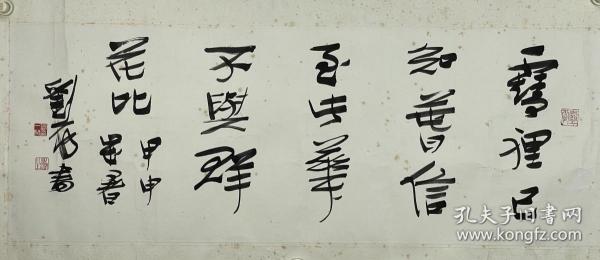 雪裡已
知萅信
至此華
不與群
花比
甲申
暑
劉 書
孔夫子旧书网
www.kongfz.com